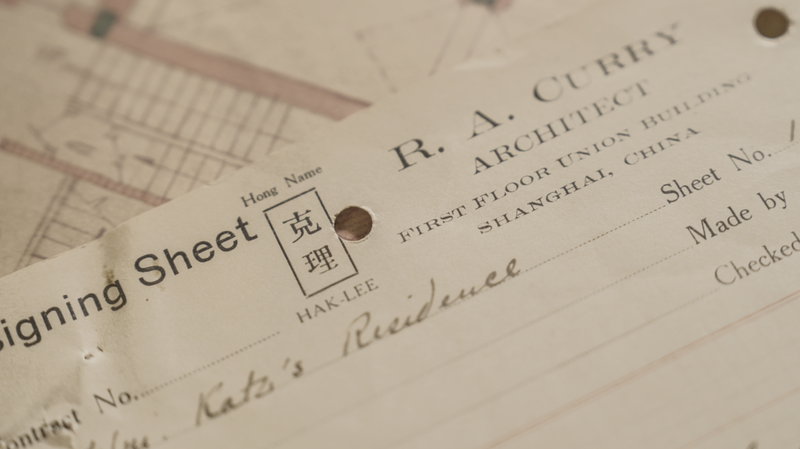 R. A. CURRY
ARCHITECT
FIRST FLOOR UNION BUILDING
SHANGHAI, CHINA
Hong Name
克理
HAK-LEE
signing Sheet
Sheet No.
Made by
Checked
Contract No.
Wm. Katz's Residence